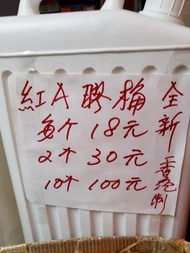 紅A膠桶
每个 18元
2个 30元
10个 100元
全新
香港制